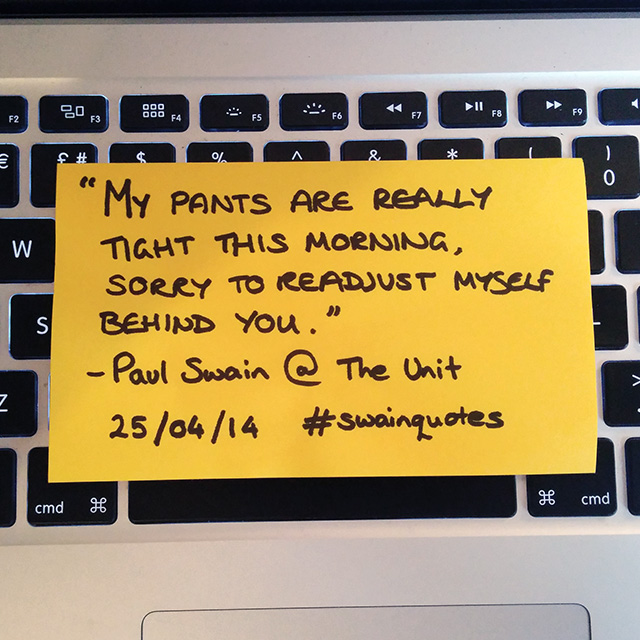 F2 F3 F4 F5 F6 F7 F8 F9
€ £ # $ % ^ & * ( )
0
W
S
Z
“MY PANTS ARE REALLY
TIGHT THIS MORNING,
SORRY TO READJUST MYSELF
BEHIND YOU.”
- Paul Swain @ The Unit
25/04/14 #swainquotes
cmd ⌘ ⌘ cmd